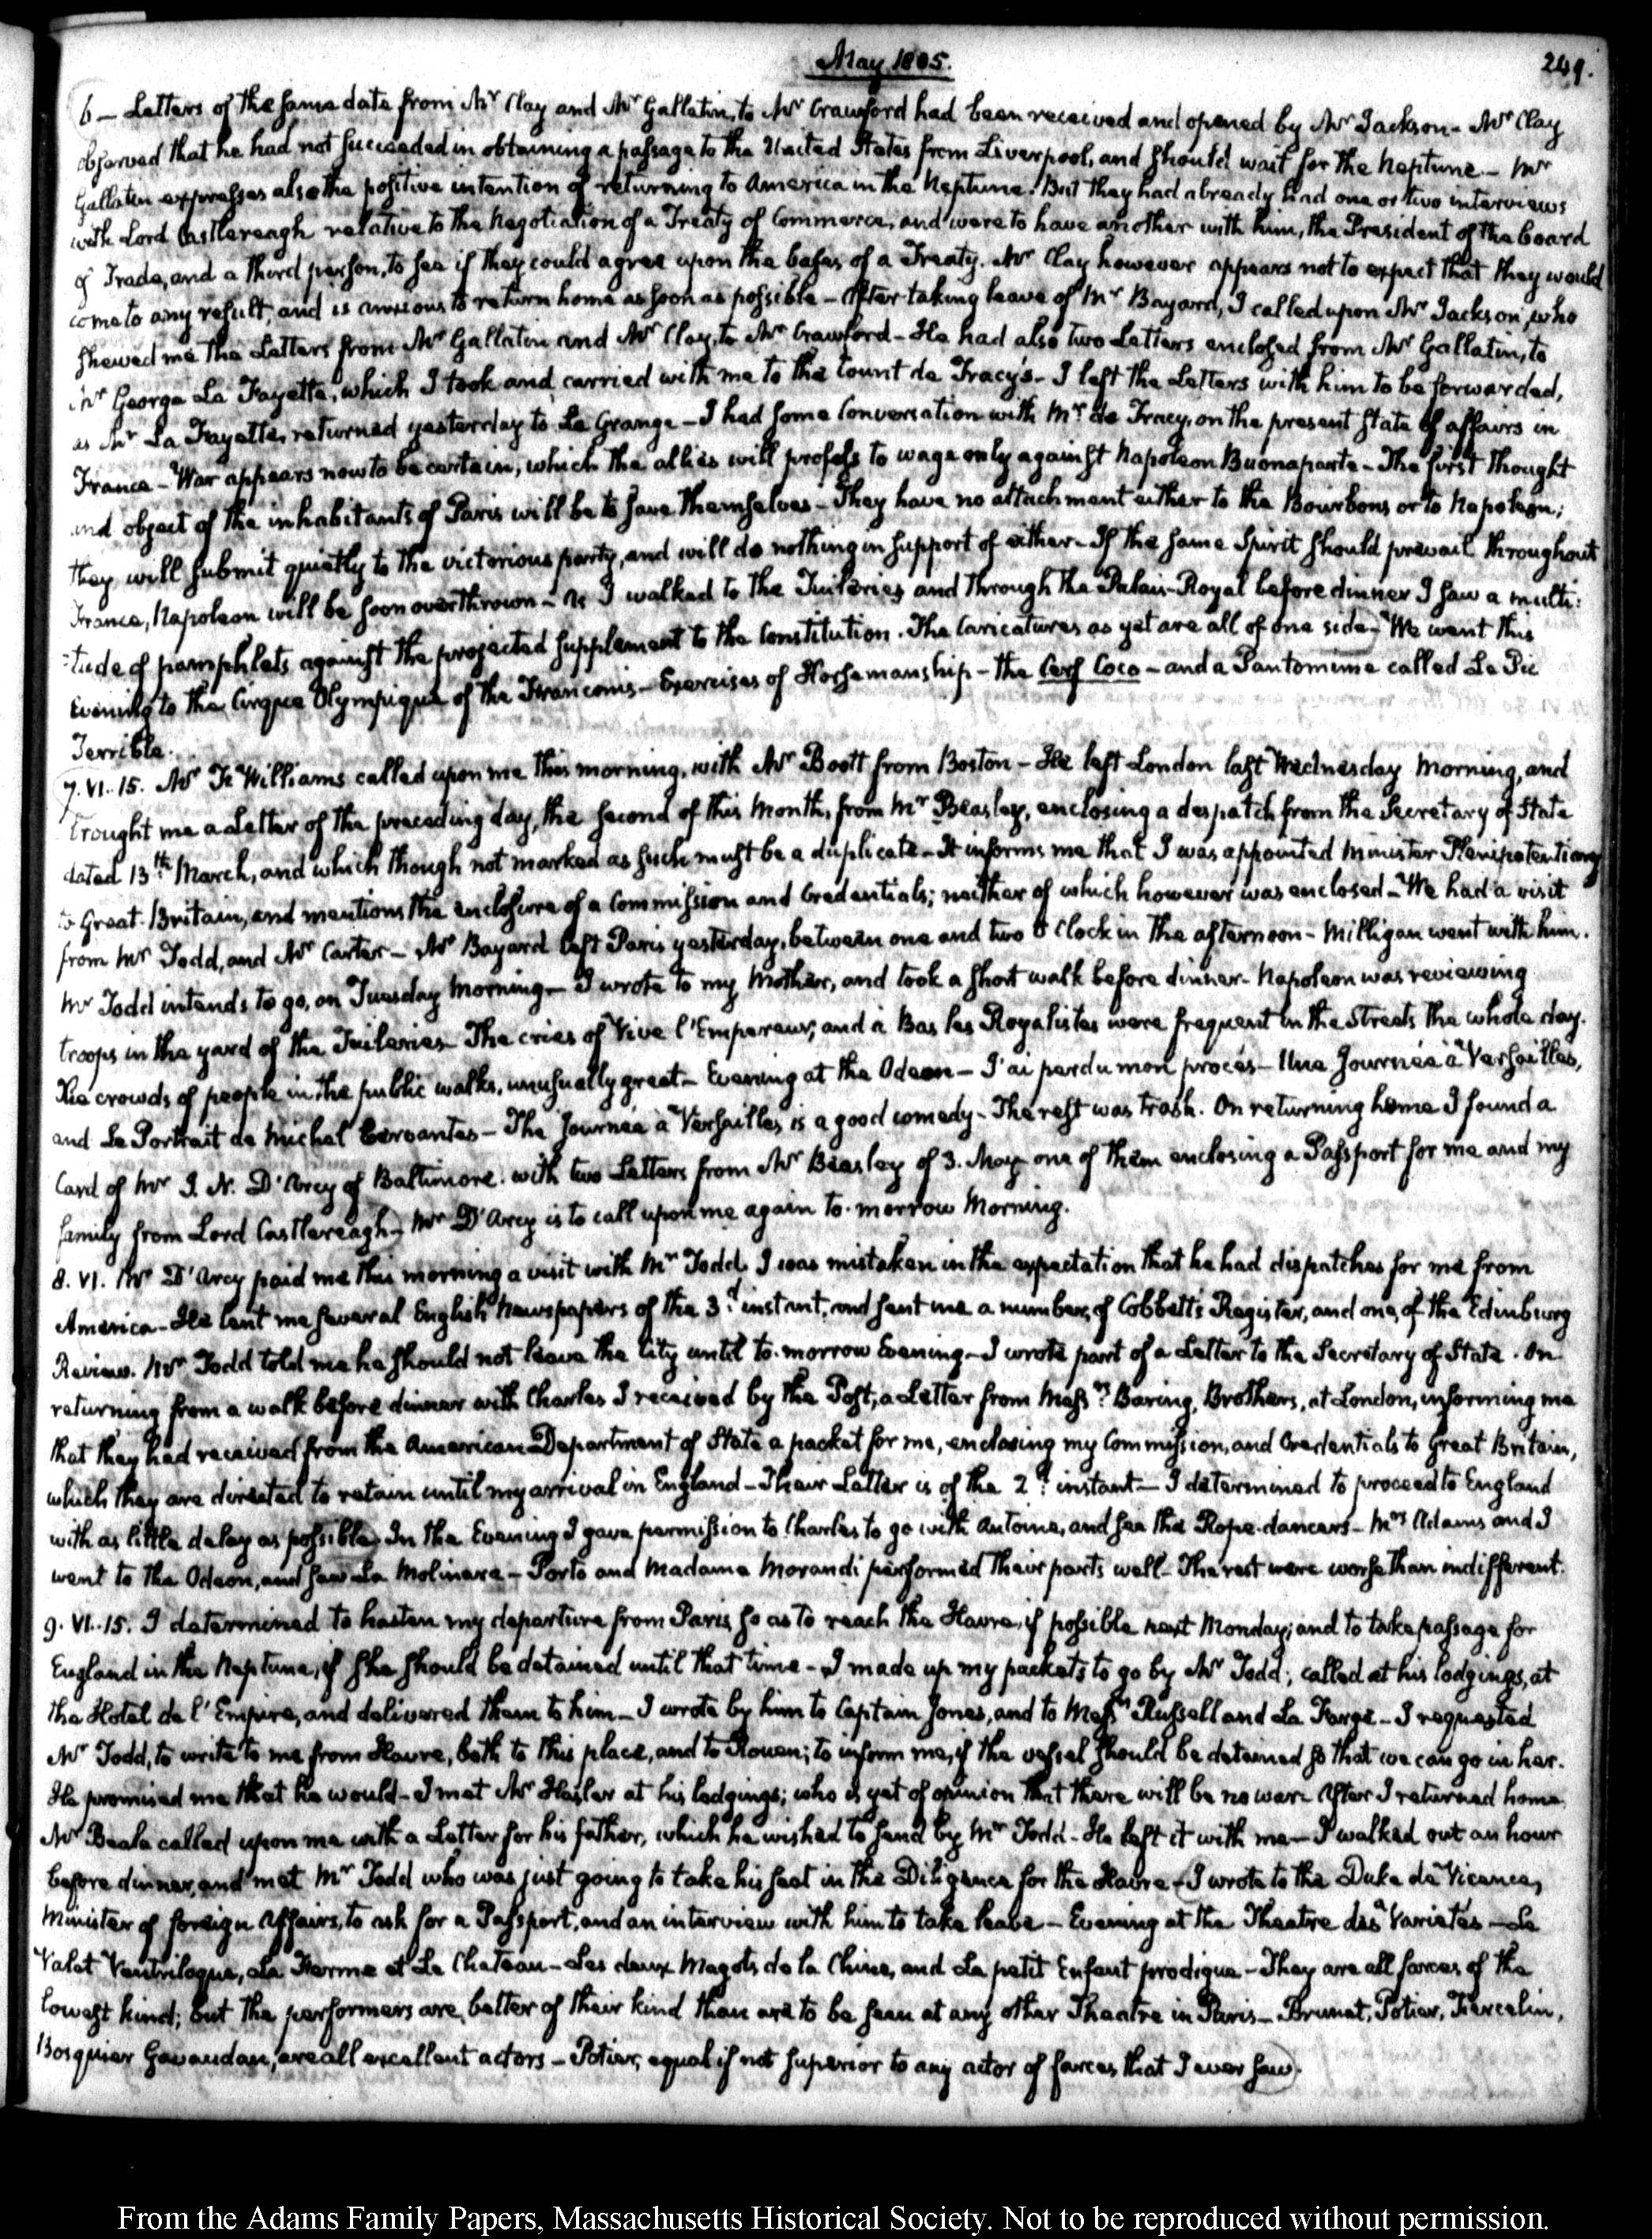 May 1805.
249.
6 — Letters of the same date from Mr Clay and Mr Gallatin, to Mr Crawford had been received and opened by Mr Jackson - Mr Clay
observed that he had not succeeded in obtaining a passage to the United States from Liverpool, and should wait for the Neptune — Mr
Gallatin expresses also the positive intention of returning to America in the Neptune. But they had already had one or two interviews
with Lord Castlereagh relative to the Negotiation of a Treaty of Commerce, and were to have another with him, the President of the board
of Trade, and a third person, to see if they could agree upon the bases of a Treaty. Mr Clay however appears not to expect that they would
come to any result, and is anxious to return home as soon as possible — After taking leave of Mr Bayard, I called upon Mr Jackson, who
shewed me the Letters from Mr Gallatin and Mr Clay, to Mr Crawford — He had also two Letters enclosed from Mr Gallatin, to
Mr George La Fayette, which I took and carried with me to the Count de Tracy's — I left the Letters with him to be forwarded,
as Mr La Fayette, returned yesterday to La Grange — I had some Conversation with Mr de Tracy, on the present State of affairs in
France — War appears now to be certain; which the allies will profess to wage only against Napoleon Buonaparte — The first thought
and object of the inhabitants of Paris will be to save themselves — They have no attachment either to the Bourbons or to Napoleon;
they will submit quietly to the victorious party, and will do nothing in support of either. If the same Spirit should prevail throughout
France, Napoleon will be soon overthrown — As I walked to the Tuileries and through the Palais-Royal before dinner I saw a multi:
:tude of pamphlets against the projected supplement to the Constitution. The Caricatures as yet are all of one side — We went this
Evening to the Cirque Olympique of the Franconis — Exercises of Horsemanship — the Cerf Coco — and a Pantomime called Le Pie
Terrible.
7. VI..15. Mr Williams called upon me this morning, with Mr Boott from Boston — He left London last Wednesday Morning, and
brought me a Letter of the preceding day, the second of this Month, from Mr Beasley, enclosing a despatch from the Secretary of State
dated 13th March, and which though not marked as such must be a duplicate — It informs me that I was appointed Minister Plenipotentiary
to Great-Britain, and mentions the enclosure of a Commission and Credentials; neither of which however was enclosed — We had a visit
from Mr Todd, and Mr Carter — Mr Bayard left Paris yesterday, between one and two O'Clock in the afternoon — Milligan went with him.
Mr Todd intends to go, on Tuesday Morning — I wrote to my Mother, and took a short walk before dinner — Napoleon was reviewing
troops in the yard of the Tuileries — The cries of Vive l'Empereur, and à Bas les Royalistes were frequent in the Streets the whole day.
The crowds of people in the public walks, unusually great — Evening at the Odeon — J'ai perdu mon procès — Une Journée à Versailles,
and Le Portrait de Michel Cervantes — The Journée à Versailles is a good comedy — The rest was trash. On returning home I found a
Card of Mr J. N. D'Arcy of Baltimore. with two Letters from Mr Beasley of 3. May one of them enclosing a Passport for me and my
family from Lord Castlereagh — Mr D'Arcy is to call upon me again to-morrow Morning.
8. VI. Mr D'Arcy paid me this morning a visit with Mr Todd. I was mistaken in the expectation that he had dispatches for me from
America — He lent me several English Newspapers of the 3d instant, and sent me a number, of Cobbett's Register, and one, of the Edinburg
Review. Mr Todd told me he should not leave the City until to-morrow Evening — I wrote part of a Letter to the Secretary of State. On
returning from a walk before dinner with Charles I received by the Post, a Letter from Messrs Baring, Brothers, at London, informing me
that they had received from the American Department of State a packet for me, enclosing my Commission, and Credentials to Great Britain,
which they are directed to retain until my arrival in England — Their Letter is of the 2d instant — I determined to proceed to England
with as little delay as possible. In the Evening I gave permission to Charles to go with Antoine, and see the Rope-dancers — Mrs Adams and I
went to the Odeon, and saw La Molinara — Porto and Madame Morandi performed their parts well — The rest were worse than indifferent.
9. VI..15. I determined to hasten my departure from Paris so as to reach the Havre, if possible next Monday; and to take passage for
England in the Neptune, if she should be detained until that time — I made up my packets to go by Mr Todd; called at his lodgings, at
the Hotel de l'Empire, and delivered them to him — I wrote by him to Captain Jones, and to Messrs Russell and La Farge — I requested
Mr Todd, to write to me from Havre, both to this place, and to Rouen; to inform me, if the vessel should be detained so that we can go in her.
He promised me that he would — I met Mr at his lodgings; who is yet of opinion that there will be no war. After I returned home
Mr Beale called upon me with a Letter for his father, which he wished to send by Mr Todd — He left it with me — I walked out an hour
before dinner, and met Mr Todd who was just going to take his seat in the Diligence for the Havre — I wrote to the Duke de Vicence,
Minister of foreign Affairs, to ask for a Passport, and an interview with him to take leave — Evening at the Theatre des Varietés — Le
Valet Ventriloque, La Ferme et Le Chateau — Les deux Magots de la Chine, and Le petit Enfant prodigue — They are all farces of the
lowest kind; but the performers are better of their kind than are to be seen at any other Theatre in Paris — Brunet, Potier, Tiercelin,
Bosquier Gavaudan, are all excellent actors — Potier, equal if not superior to any actor of farces that I ever saw.
From the Adams Family Papers, Massachusetts Historical Society. Not to be reproduced without permission.